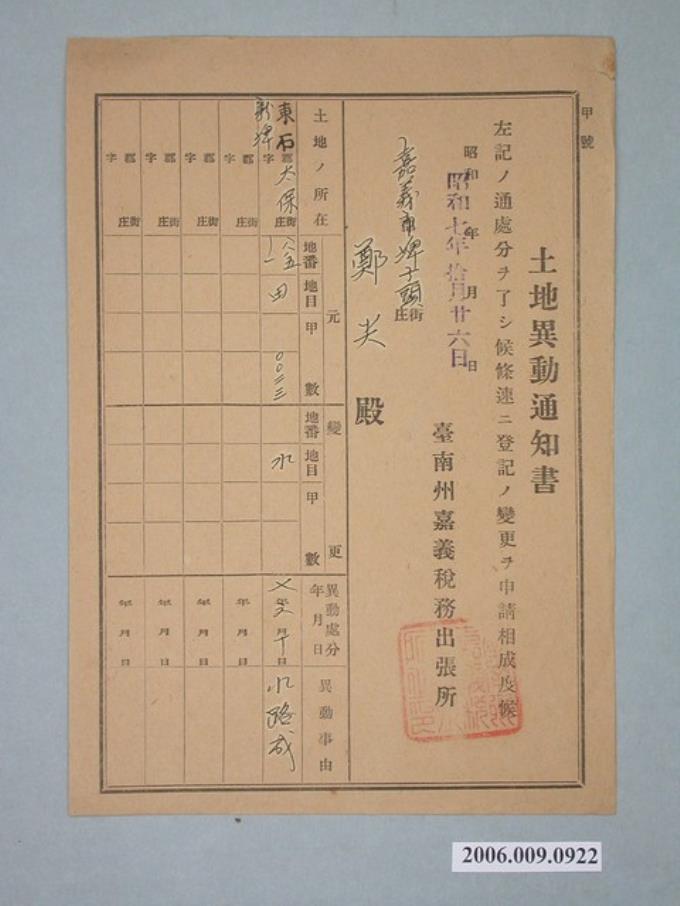 甲號
土地異動通知書
左記ノ通處分ヲ了シ候條速ニ登記ノ變更ヲ申請相成度候
昭和 年 月 日
昭和七年拾月廿六日
臺南州嘉義稅務出張所
嘉義市埤頭街庄
鄭尖殿
土地ノ所在
元
地番
地目
甲數
變更
地番
地目
甲數
異動處分年月日
異動事由
東石郡太保街庄
新埤字
田
〇〇二三
水
年月日
水路成
郡 街庄
字
年月日
郡 街庄
字
年月日
郡 街庄
字
年月日
郡 街庄
字
年月日
2006.009.0922